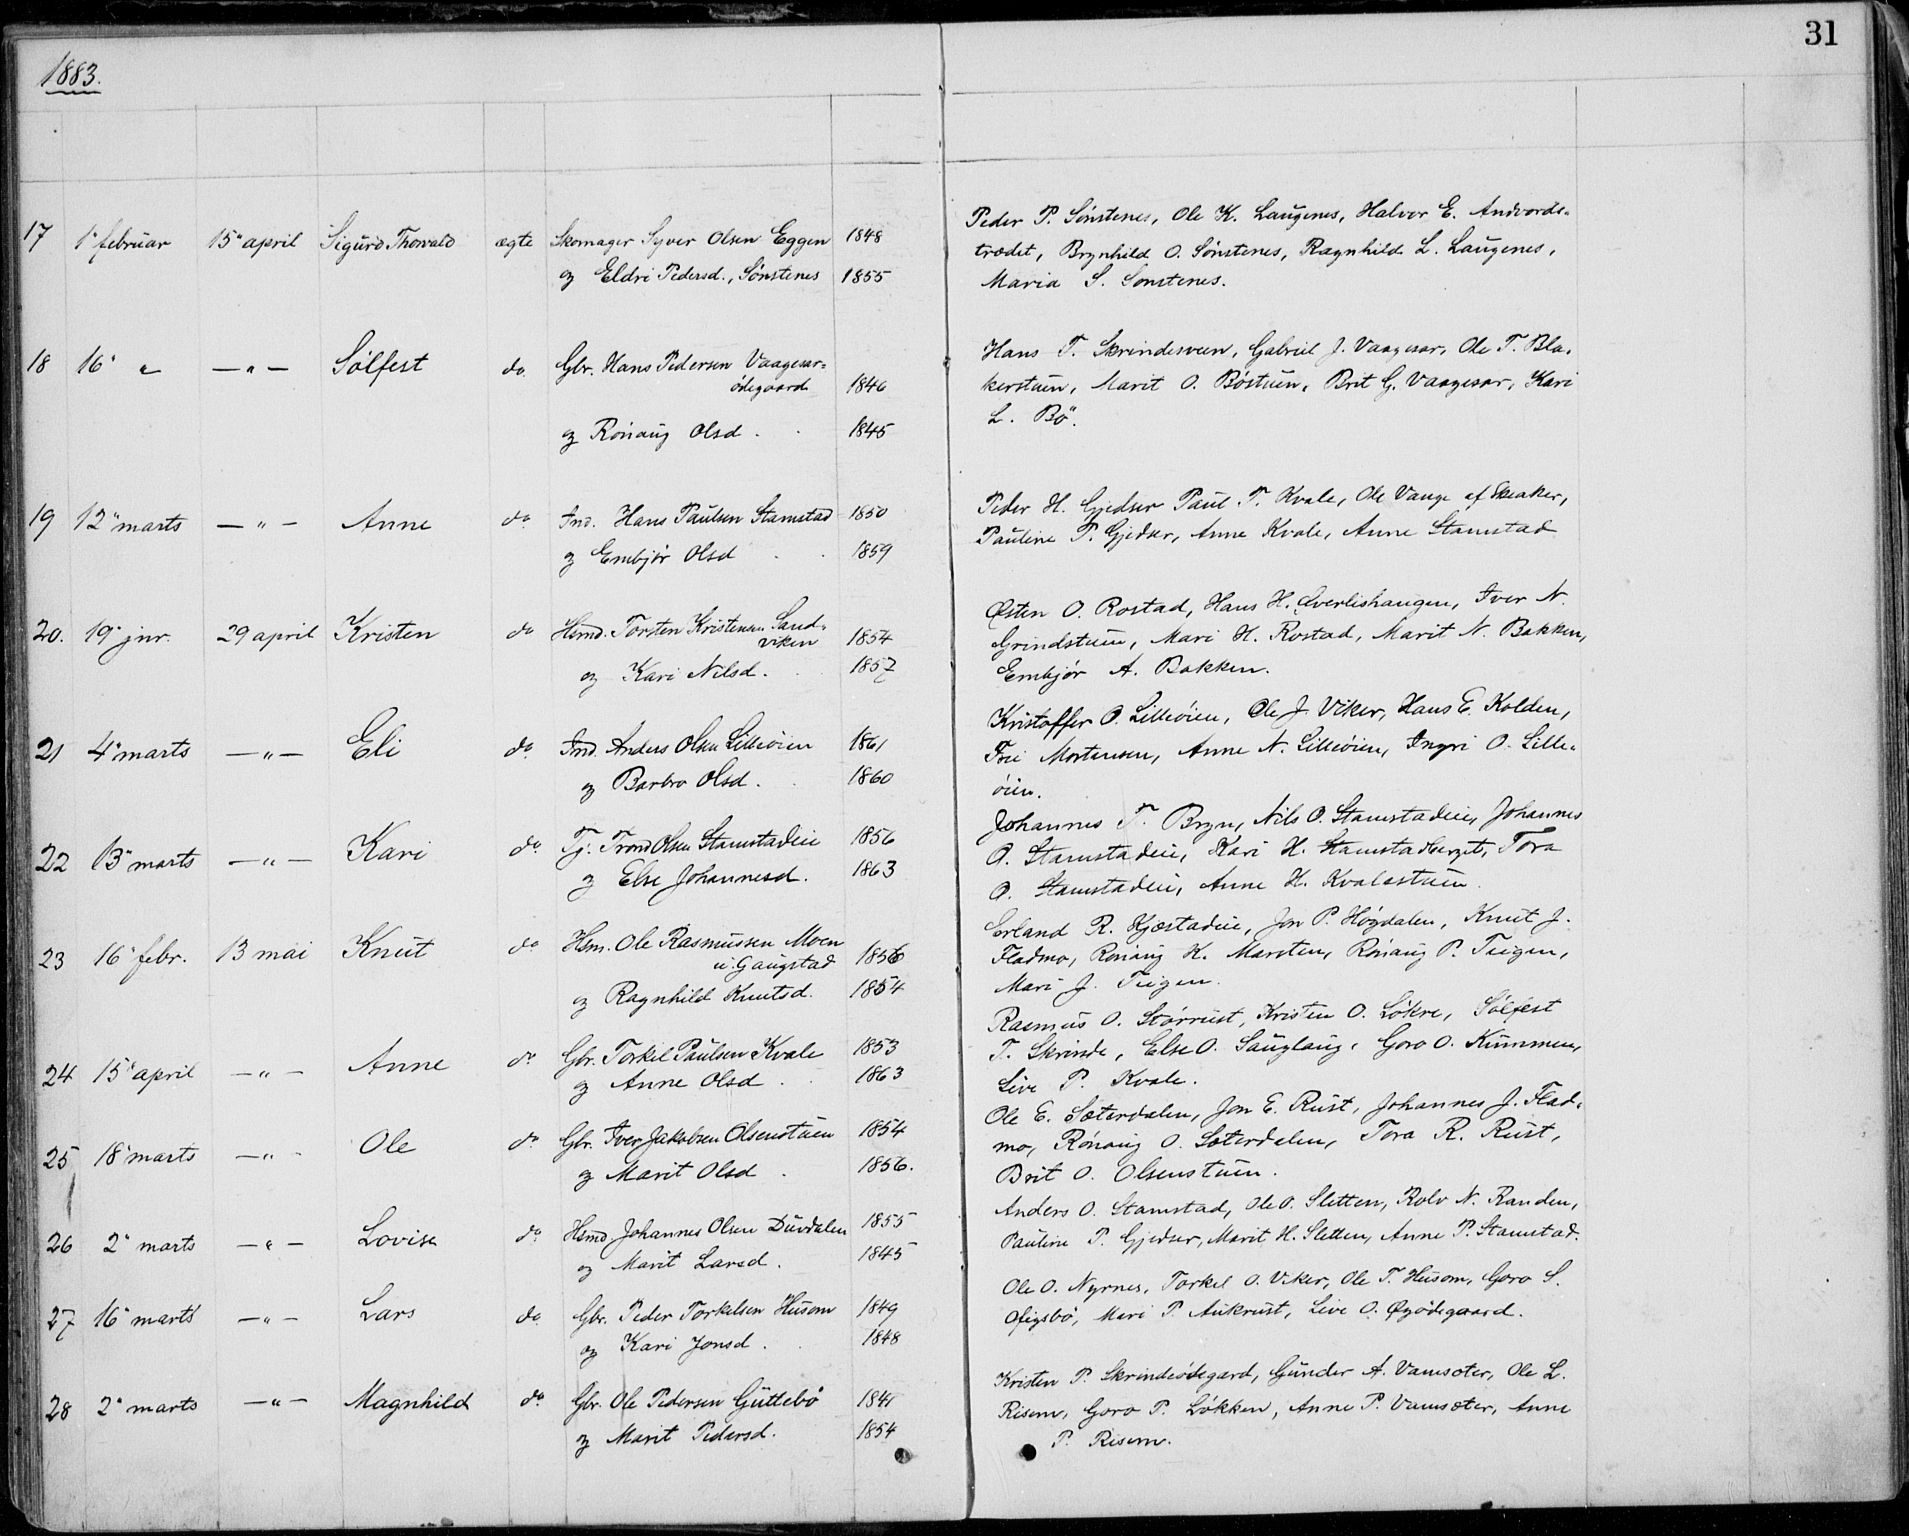 31
1883.
17 1ᵉ februar 15ᵉ april Sigurd Thorvald ægte Skomager Syver Olsen Eggen 1848
og Eldri Pedersd., Sönstenes 1855
Peder P. Sönstenes, Ole K. Laugenes, Halvor E. Andvords-
trædet, Brynhild O. Sönstenes, Ragnhild L. Laugenes,
Maria S. Sonstenes.
18 16ᵉ " — " — Sölfest do. Gbr. Hans Pedersen Vaagesar-
ödegaard 1846
og Rönaug Olsd. 1845
Hans T. Skrindesveen, Gabriel J. Vaagesar, Ole T. Bla-
kerstuen, Marit O. Böstuen, Brit G. Vaagesar, Kari
L. Bö.
19 12ᵉ marts — " — Anne do Ind. Hans Paulsen Stamstad 1850
og Embjör Olsd 1859
Peder H. Gjedser Paul T. Kvale, Ole Vange af Skeaker,
Pauline P. Gjedser, Anne Kvale, Anne Stamstad
20. 19ᵉ jnr. 29 april Kristen do Hsmd. Torsten Kristensen Sand-
viken 1854
og Kari Nilsd. 1857
Østen O. Rostad, Hans H. Qverlishaugen, Iver N.
Grindstuen, Mari H. Rostad, Marit N. Bakken,
Embjør A. Bakken.
21 4ᵉ marts — " — Eli do. Ind. Anders Olsen Lilleöien 1861
og Barbro Olsd. 1860
Kristoffer O. Lilleöien, Ole J. Viker, Hans E. Kolden,
Mortensen, Anne N. Lilleöien, Ingri O. Lille-
öien.
22 13ᵉ marts — " — Kari do. Tj. Trond Olsen Stamstadeie 1856
og Else Johannesd. 1863
Johannes T. Bryn, Nils O. Stamstadeie, Johannes
O. Stamstadeie, Kari H. Stamstadberget, Tora
O. Stamstadeie, Anne H. Kvalestuen.
23 16ᵉ febr. 13 mai Knut do Hsm. Ole Rasmussen Moen
u. Gaugstad 1856
og Ragnhild Knutsd. 1854
Erland R. Kjæstadeie, Jon P. Högdalen, Knut J.
Fladmo, Rönaug K. Marsten, Rönaug P. Teigen,
Mari J. Teigen.
24 15ᵉ april — " — Anne do Gbr. Torkil Paulsen Kvale 1853
og Anne Olsd 1863
Rasmus O. Störrust, Kristen O. Lökre, Sölfest
T. Skrinde, Else O. Sauglaug, Goro O. Kummen,
Live P. Kvale.
25 18ᵉ marts — " — Ole do Gbr. Iver Jakobsen Olsenstuen 1854
og Marit Olsd 1856.
Ole E. Sæterdalen, Jon E. Rust, Johannes J. Flad-
mo, Rönaug O. Sæterdalen, Tora R. Rust,
Brit O. Olsenstuen.
26 2ᵉ marts — " — Lovise do Hsmd Johannes Olsen Durdalen 1855
og Marit Larsd. 1845
Anders O. Stamstad, Ole O. Sletten, Rolv N. Randen,
Pauline P. Gjedser, Marit H. Sletten, Anne P. Stamstad.
27 16ᵉ marts — " — Lars do Gbr. Peder Torkelsen Husom 1849
og Kari Jonsd. 1848
Ole O. Nyrnes, Torkel O. Viker, Ole T. Husom, Goro S.
Ofigsbö, Mari P. Aukrust, Live O. Øyödegaard.
28 2ᵉ marts — " — Magnhild do. Gbr. Ole Pedersen Guttebö 1841
og Marit Pedersd. 1854
Kristen P. Skrindeödegard, Gunder A. Vamsæter, Ole L.
Risem, Goro P. Lökken, Anne P. Vamsæter, Anne
P. Risem.